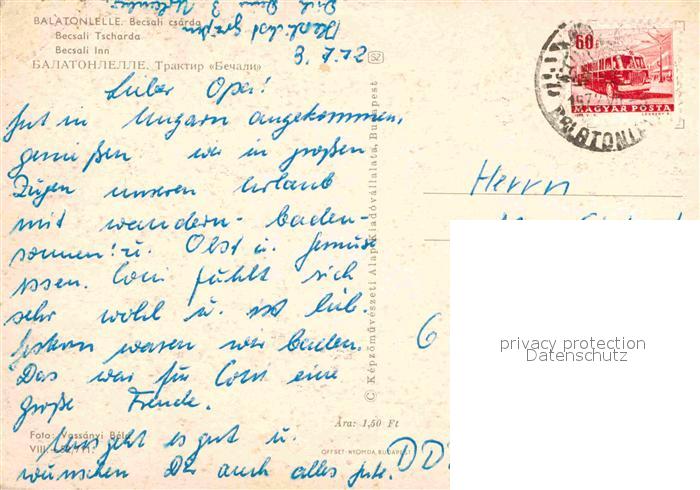 BALATONLELLE. Becsali csárda
Becsali Tscharda
Becsali Inn
БАЛАТОНЛЕЛЛЕ. Трактир «Бечали»
3.7.72
SZ
60f
MAGYAR POSTA
BALATONLE
Lieber Opa!
Gut in Ungarn angekommen,
genießen wir in großen
Zügen unseren Urlaub
mit wandern- baden-
sonnen! u. Obst u. Gemüse
essen. Coni fühlt sich
sehr wohl u. ist lieb.
Gestern waren wir baden.
Das war für Coni eine
große Freude.
Uns geht es gut u.
wünschen Dir auch alles gute.
Foto: Vassányi Béla
VIII.
Ára: 1,50 Ft
OFFSET-NYOMDA, BUDAPEST
© Képzőművészeti Alap Kiadóvállalata, Budapest
Herrn
6
DD
privacy protection
Datenschutz